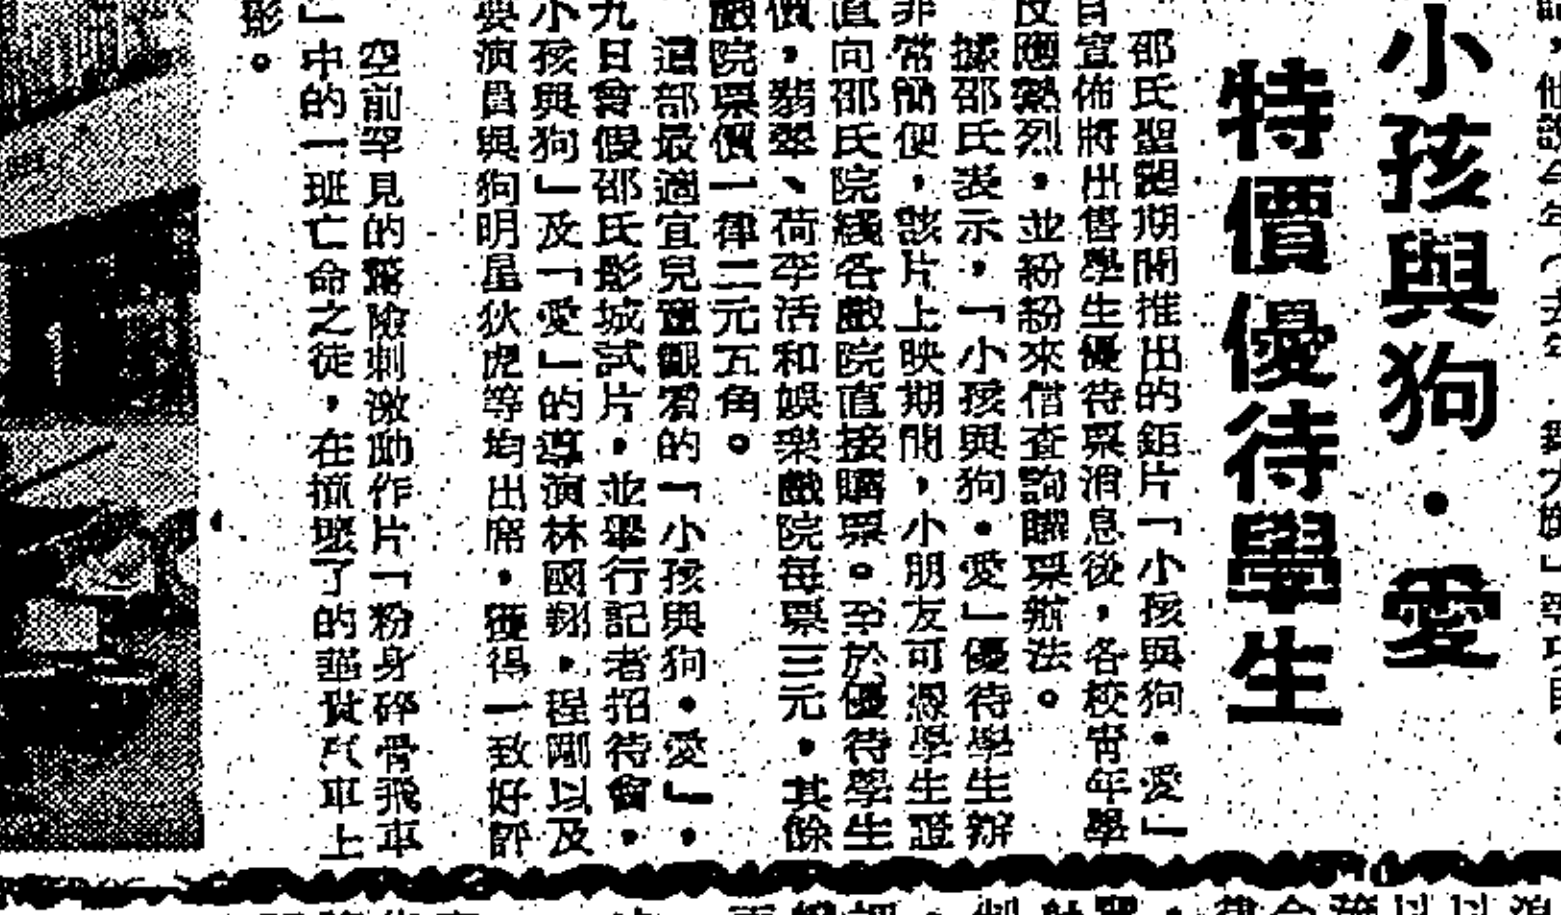 小孩與狗・愛
特價優待學生
邵氏聖誕期間推出的鉅片「小孩與狗・愛」
自宣佈將出售學生優待票消息後，各校青年學
反應熱烈，並紛紛來信查詢購票辦法。
據邵氏表示，「小孩與狗・愛」優待學生辦
非常簡便，該片上映期間，小朋友可憑學生證
直向邵氏院綫各戲院直接購票。至於優待學生
價，翡翠、荷李活和娛樂戲院每票三元，其餘
戲院票價一律二元五角。
這部最適宜兒童觀看的「小孩與狗・愛」，
九日曾假邵氏影城試片，並舉行記者招待會，
小孩與狗」及「愛」的導演林國翔，程剛以及
要演員與狗明星狄虎等均出席，獲得一致好評
空前罕見的驚險刺激動作片「粉身碎骨飛車
」中的一班亡命之徒，在撞壞了的汽車上
影。